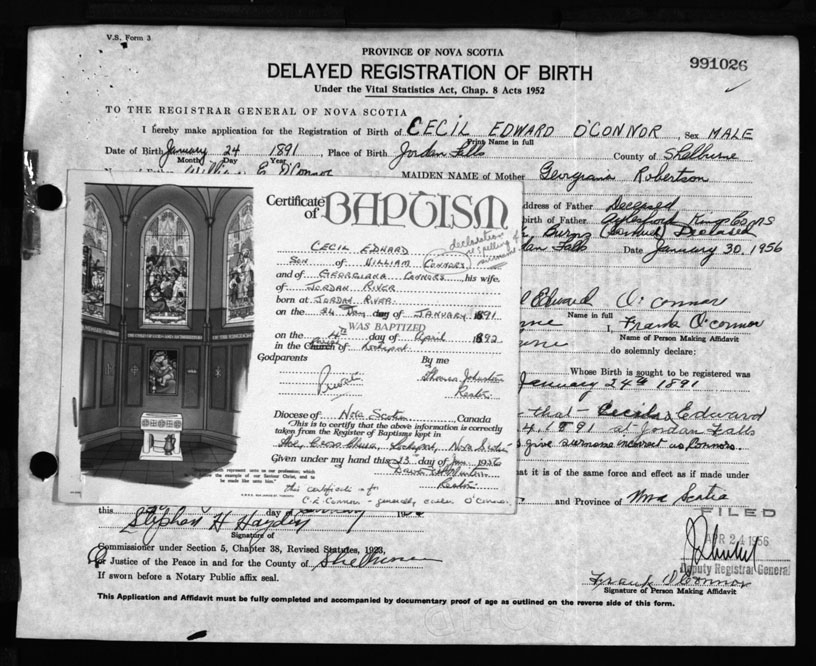 V.S. Form 3
PROVINCE OF NOVA SCOTIA
991026
DELAYED REGISTRATION OF BIRTH
Under the Vital Statistics Act, Chap. 8 Acts 1952
TO THE REGISTRAR GENERAL OF NOVA SCOTIA
I hereby make application for the Registration of Birth of CECIL EDWARD O'CONNOR Sex MALE
Print Name in full
Date of Birth January 24 1891, Place of Birth Jordan Falls County of Shelburne
Month Day Year
William E O'Connor MAIDEN NAME of Mother Georgiana Robertson
Address of Father Deceased
birth of Father Aylesford Kings Co NS
Deceased
dan Falls Date January 30, 1956
Edward O'Connor
Name in full
I, Frank O'Connor
Name of Person Making Affidavit
do solemnly declare:
Whose Birth is sought to be registered was
January 24th 1891
that Cecil Edward
4, 1891 at Jordan Falls
give surname incorrect as Connors
at it is of the same force and effect as if made under
and Province of Nova Scotia
this day of
Stephen H Hayden
Signature of
Commissioner under Section 5, Chapter 38, Revised Statutes, 1923,
or Justice of the Peace in and for the County of Shelburne
If sworn before a Notary Public affix seal.
FILED
APR 24 1956
Deputy Registrar General
Frank O'Connor
Signature of Person Making Affidavit
This Application and Affidavit must be fully completed and accompanied by documentary proof of age as outlined on the reverse side of this form.
Certificate of BAPTISM
declaration re spelling of surname
CECIL EDWARD
SON of WILLIAM CONNORS
and of GEORGIANA CONNORS, his wife.
of JORDAN RIVER
born at JORDAN RIVER
on the 24 day of JANUARY 1891
WAS BAPTIZED
on the 4th day of April 1892
in the Church of Lockeport
Godparents By me
Private Thomas Johnston
Rector
Diocese of Nova Scotia Canada
This is to certify that the above information is correctly
taken from the Register of Baptisms kept in
Lockeport, Nova Scotia
Given under my hand this 23 day of Jan 1956
Rector
represent unto us our profession; which
the example of our Saviour Christ, and to
be made like unto him.
this certificate is for
C.E. Connors - generally O'Connor